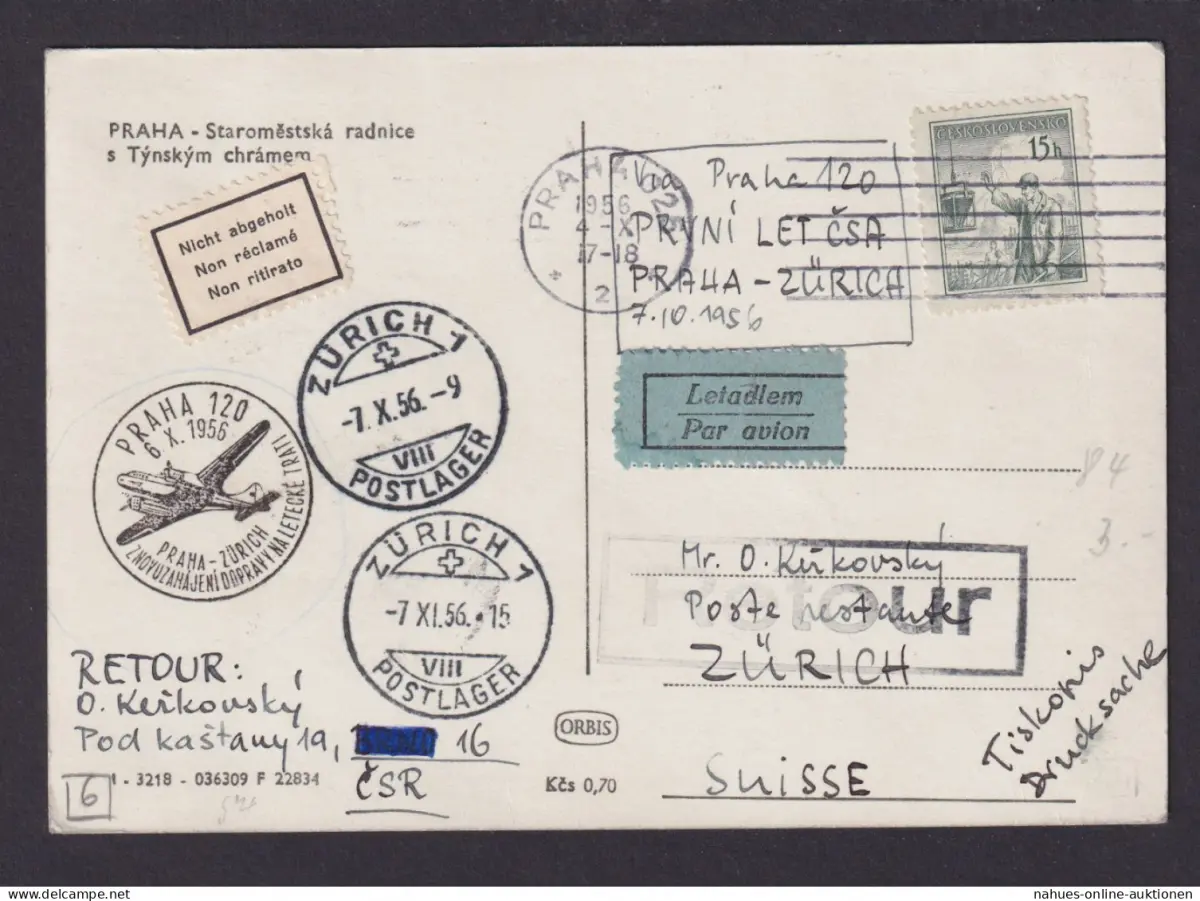 PRAHA - Staroměstská radnice
s Týnským chrámem
Nicht abgeholt
Non réclamé
Non ritirato
PRAHA 025
1956
4-X
17-18
* 2 *
Via Praha 120
PRVNÍ LET ČSA
PRAHA - ZÜRICH
7.10.1956
ČESKOSLOVENSKO
15h
Letadlem
Par avion
ZÜRICH 1
-7.X.56.-9
VIII
POSTLAGER
PRAHA 120
6 X. 1956
PRAHA - ZÜRICH
ZNOVUZAHÁJENÍ DOPRAVY NA LETECKÉ TRATI
ZÜRICH 1
-7.XI.56.•15
VIII
POSTLAGER
84
3.-
Mr. O. Keřkovský
Poste restante
ZÜRICH
SUISSE
Retour
Tiskopis
Drucksache
RETOUR:
O. Keřkovský
Pod kaštany 19, 16
ČSR
- 3218 - 036309 F 22834
6
ORBIS
Kčs 0,70
nahues-online-auktionen